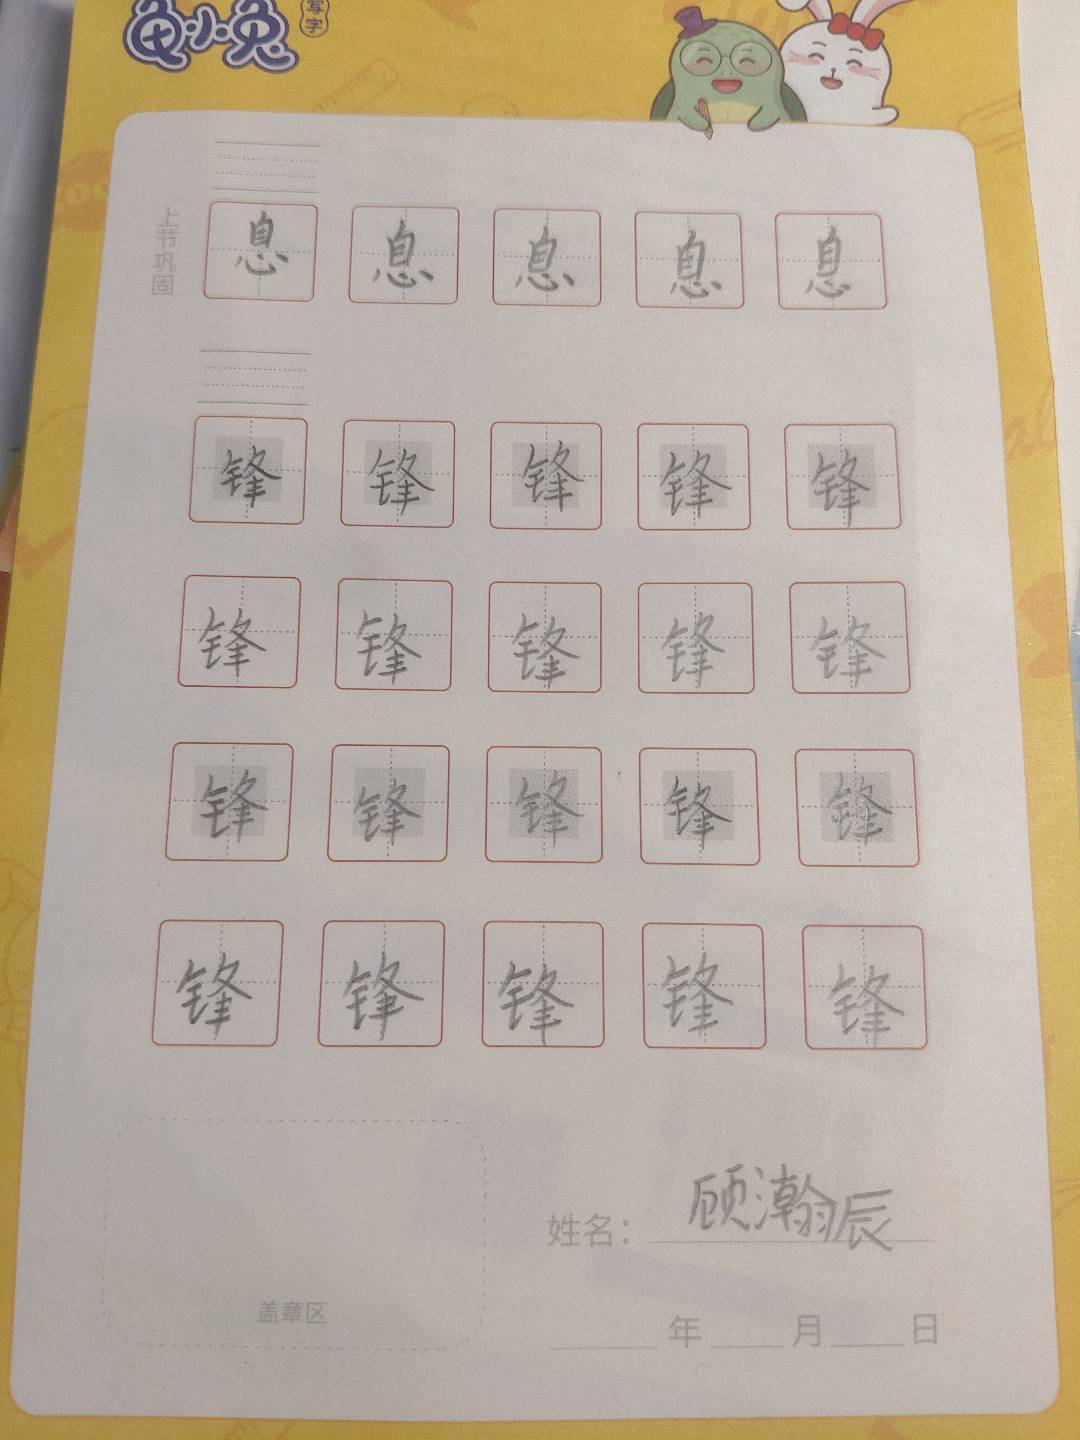 龟小兔
写字
上节巩固
息 息 息 息 息
锋 锋 锋 锋 锋
锋 锋 锋 锋 锋
锋 锋 锋 锋 锋
锋 锋 锋 锋 锋
姓名：顾瀚辰
盖章区
年 月 日